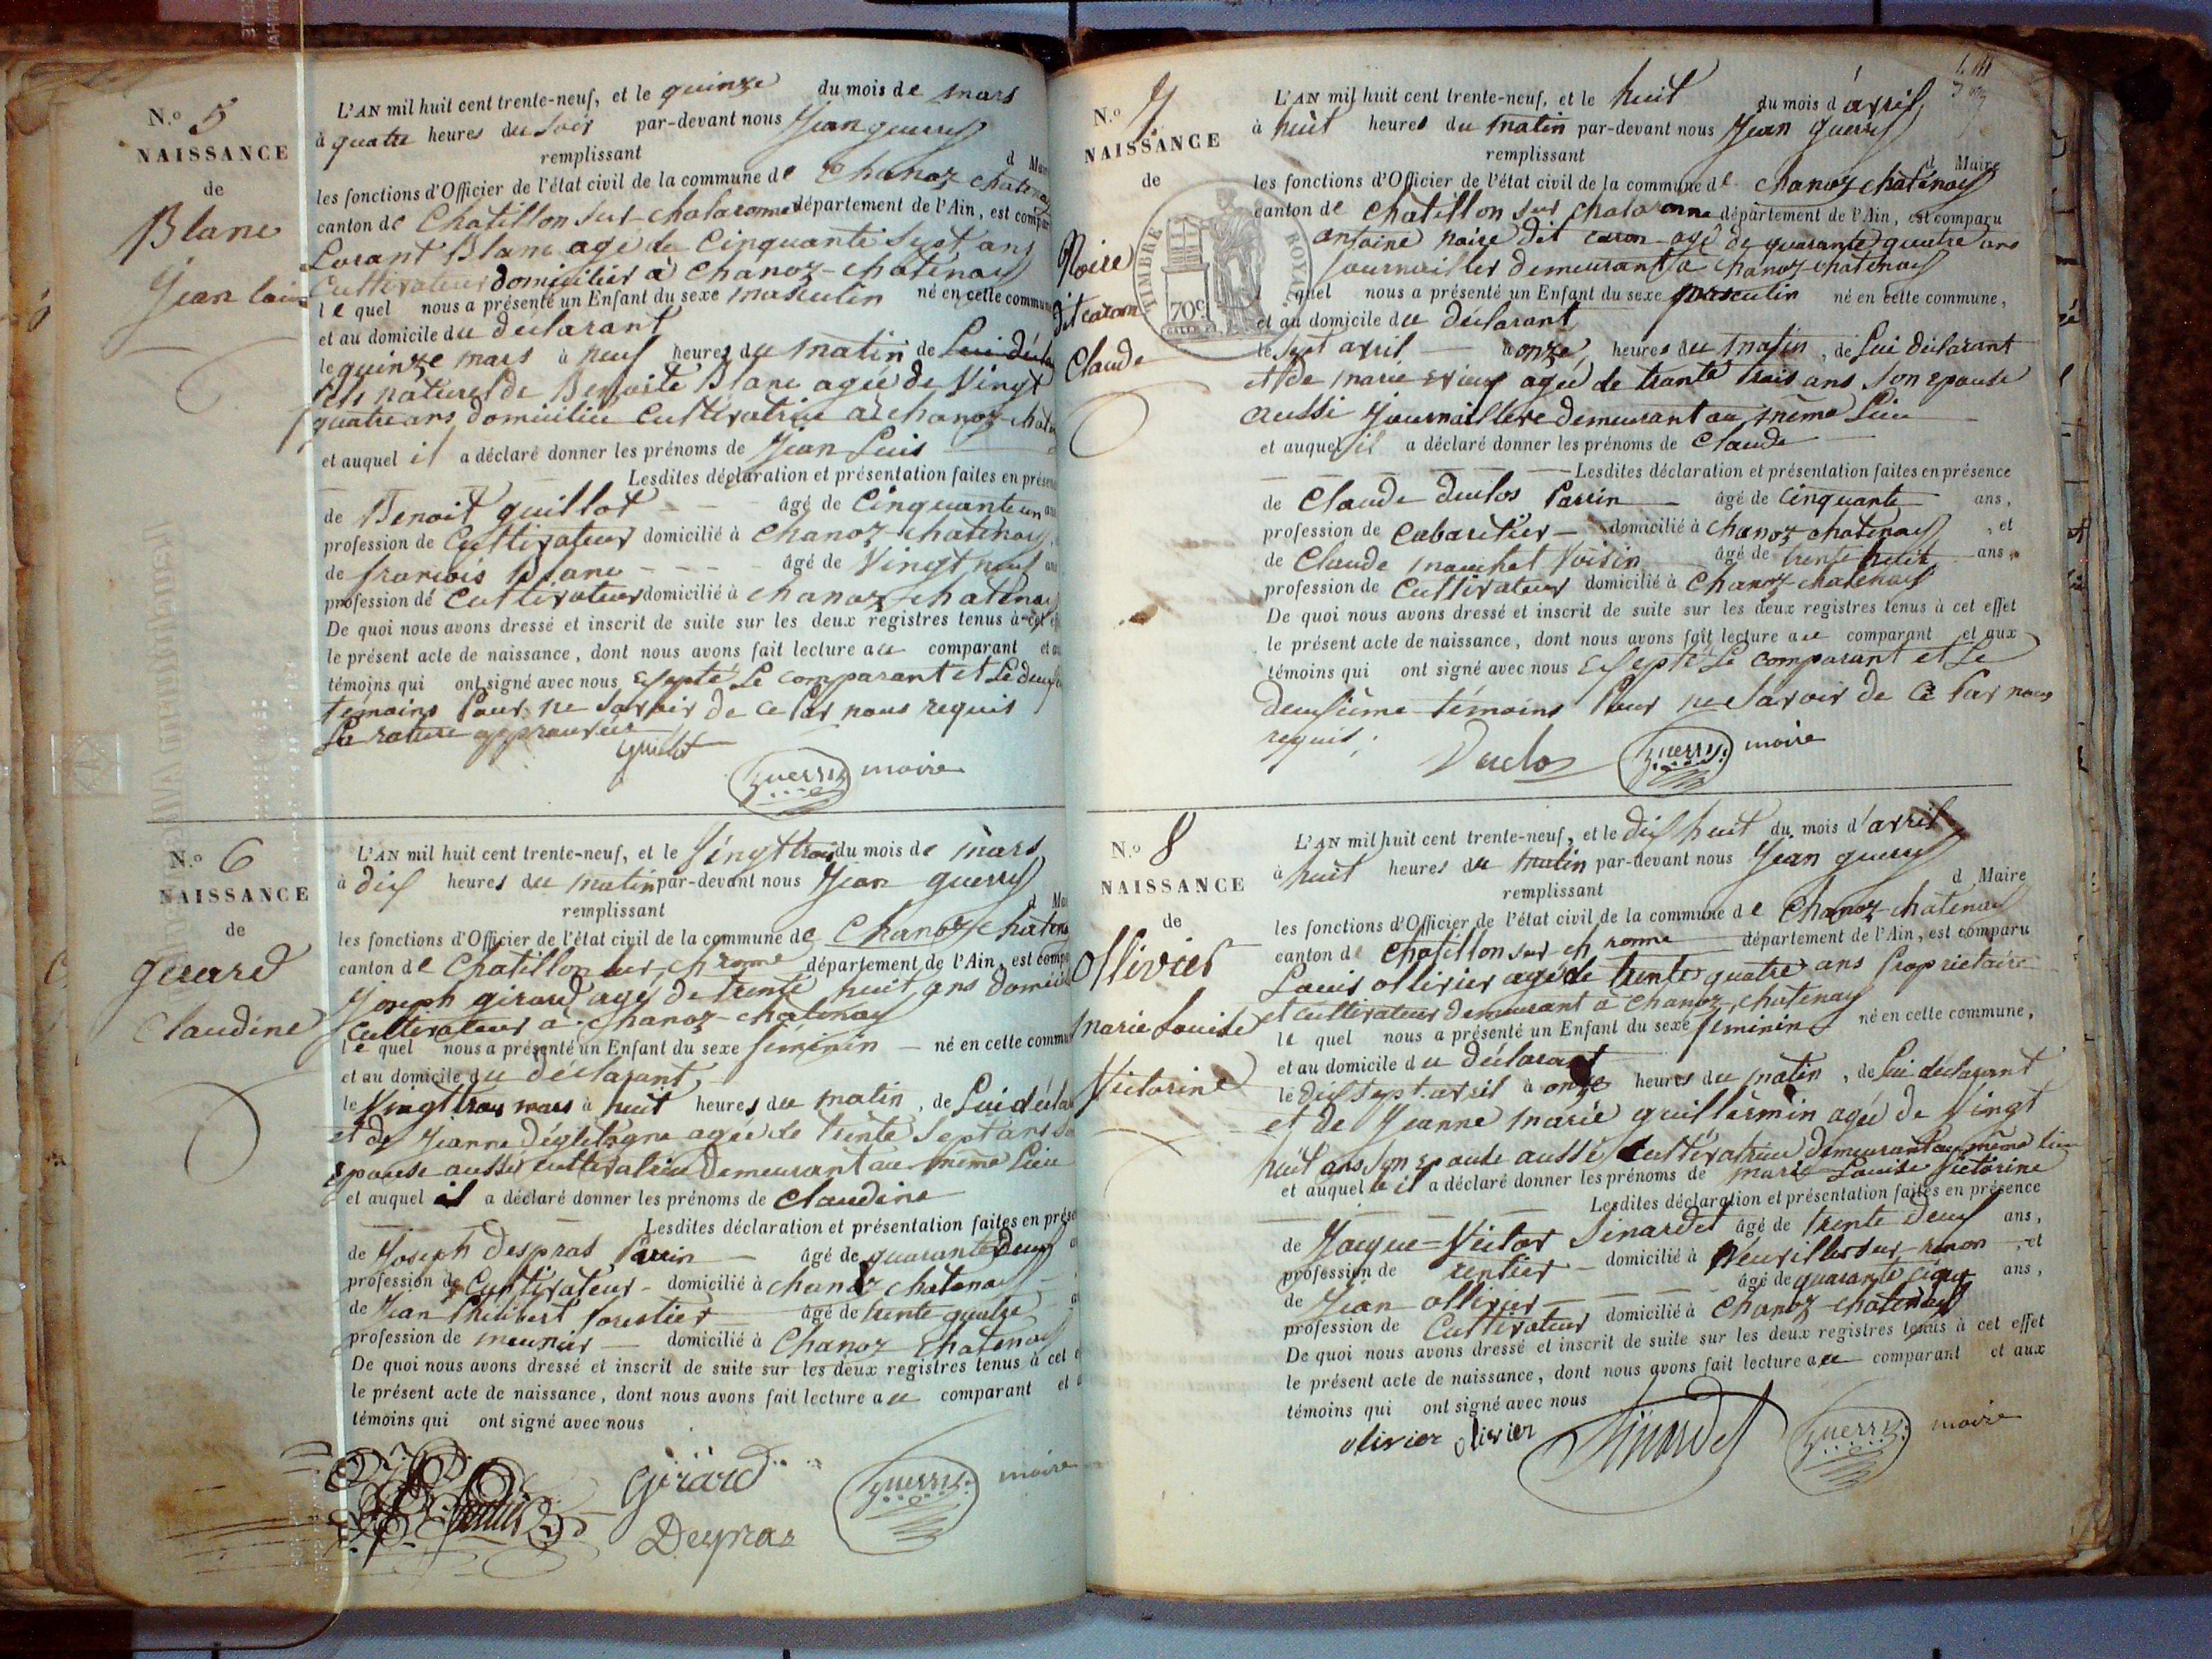 N.º 5
NAISSANCE
de
Blanc
Jean Louis
L'AN mil huit cent trente-neuf, et le quinze du mois de mars
à quatre heures du soir par-devant nous Jean guerry
remplissant d Maire
les fonctions d'Officier de l'état civil de la commune de Chanoz chatenay
canton de Chatillon sur chalaronne département de l'Ain, est comparu
Lorant Blanc agé de Cinquante Sept ans
Cultivateur domicilier à Chanoz-chatenay
le quel nous a présenté un Enfant du sexe masculin né en cette commune
et au domicile du declarant
le quinze mars à neuf heures du matin de Lui décla
fils naturel de Benoite Blanc agée de Vingt
quatre ans domiciliée Cultivatrice à chanoz-chat
et auquel il a déclaré donner les prénoms de Jean Luis
Lesdites déclaration et présentation faites en présence
de Benoit guillot âgé de Cinquante un ans
profession de Cultivateur domicilié à Chanoz-chatenay,
de françois Blanc âgé de Vingt neuf ans
profession de Cultivateur domicilié à chanoz chatenay
De quoi nous avons dressé et inscrit de suite sur les deux registres tenus à cet effet
le présent acte de naissance, dont nous avons fait lecture au comparant et aux
témoins qui ont signé avec nous Exsepté Le comparant et Le deux
temoins Pour ne Savoir de ce Par nous requis
La rature approuvée
guillot guerry maire
N.º 6
NAISSANCE
de
gerard
Claudine
L'AN mil huit cent trente-neuf, et le Vingt trois du mois de mars
à dix heures du matin par-devant nous Jean guerry
remplissant d Maire
les fonctions d'Officier de l'état civil de la commune de Chanoz chatenay
canton de Chatillon sur ch ronne département de l'Ain, est comparu
Joseph girard agé de trente huit ans domicilié
Cultivateur à Chanoz-chatenay
le quel nous a présenté un Enfant du sexe féminin né en cette commune
et au domicile du déclarant
le Vingt trois mars à huit heures du matin, de Lui décla
et de Jeanne agée de trente Sept ans So
Epouse aussi cultivatrice Demeurant au même Lieu
et auquel il a déclaré donner les prénoms de Claudine
Lesdites déclaration et présentation faites en présence
de Joseph Despras Parrin âgé de quarante Deux
profession de Cultivateur domicilié à chanoz chatenay
de Jean Philibert forestier âgé de trente quatre
profession de meunier domicilié à Chanoz Chatenay
De quoi nous avons dressé et inscrit de suite sur les deux registres tenus à cet effet
le présent acte de naissance, dont nous avons fait lecture au comparant et aux
témoins qui ont signé avec nous
Gérard guerry maire
Despras
N.º 7
NAISSANCE
de
Noire
dit caron
Claude
TIMBRE ROYAL.
70c
L'AN mil huit cent trente-neuf, et le huit du mois d'avril
à huit heures du matin par-devant nous Jean guerry
remplissant d Maire
les fonctions d'Officier de l'état civil de la commune de chanoz chatenay
canton de chatillon sur chalaronne département de l'Ain, est comparu
antoine noire dit caron agé de quarante quatre ans
journallier demeurant à chanoz-chatenay
quel nous a présenté un Enfant du sexe masculin né en cette commune,
et au domicile du déclarant
le sept avril à onze heures du matin, de Lui déclarant
et de marie agée de trante trois ans Son epouse
aussi Journaillere demeurant au même Lieu
et auquel il a déclaré donner les prénoms de Claude
Lesdites déclaration et présentation faites en présence
de Claude duclos Parrin âgé de cinquante ans,
profession de Cabaretier domicilié à Chanoz chatenay, et
de Claude manchet Voisin âgé de trente huit ans,
profession de Cultivateur domicilié à Chanoz-chatenay
De quoi nous avons dressé et inscrit de suite sur les deux registres tenus à cet effet
le présent acte de naissance, dont nous avons fait lecture au comparant et aux
témoins qui ont signé avec nous Exsepté Le comparant et Le
deuxiûme témoins Pour ne Savoir de ce Par nous
requis;
Duclos guerry maire
N.º 8
NAISSANCE
de
Ollivier
marie Louise
Victorine
L'AN mil huit cent trente-neuf, et le dix huit du mois d'avril
à huit heures du matin par-devant nous Jean guerry
remplissant d Maire
les fonctions d'Officier de l'état civil de la commune de Chanoz-chatenay
canton de Chatillon sur ch ronne département de l'Ain, est comparu
Louis ollivier agé de trente quatre ans Proprietaire
et cultivateur demeurant à Chanoz chatenay
le quel nous a présenté un Enfant du sexe féminin né en cette commune,
et au domicile du déclarant
le dix sept avril à onze heures du matin, de Lui déclarant
et de Jeanne marie guillermin agée de Vingt
huit ans Son epouse aussi Cultivatrice demeurant au même lieu
et auquel il a déclaré donner les prénoms de marie Louise Victorine
Lesdites déclaration et présentation faites en présence
de Jacque-Victor Sinardet âgé de trente deux ans,
profession de rentier domicilié à Neuville sur renon, et
de Jean ollivier âgé de quarante cinq ans,
profession de Cultivateur domicilié à Chanoz-chatenay
De quoi nous avons dressé et inscrit de suite sur les deux registres tenus à cet effet
le présent acte de naissance, dont nous avons fait lecture au comparant et aux
témoins qui ont signé avec nous
olivier olivier Sinardet guerry maire